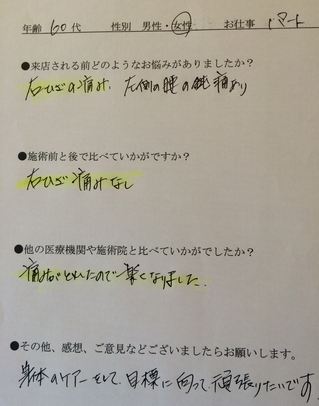 年齢 60代 性別 男性・女性 お仕事 パート
●来店される前どのようなお悩みがありましたか?
右ひざの痛み、左側の腰の鈍痛あり
●施術前と後で比べていかがですか?
右ひざ痛みなし
●他の医療機関や施術院と比べていかがでしたか?
痛みがとれたので楽になりました。
●その他、感想、ご意見などございましたらお願いします。
身体のケアーをして、目標に向って頑張りたいです。